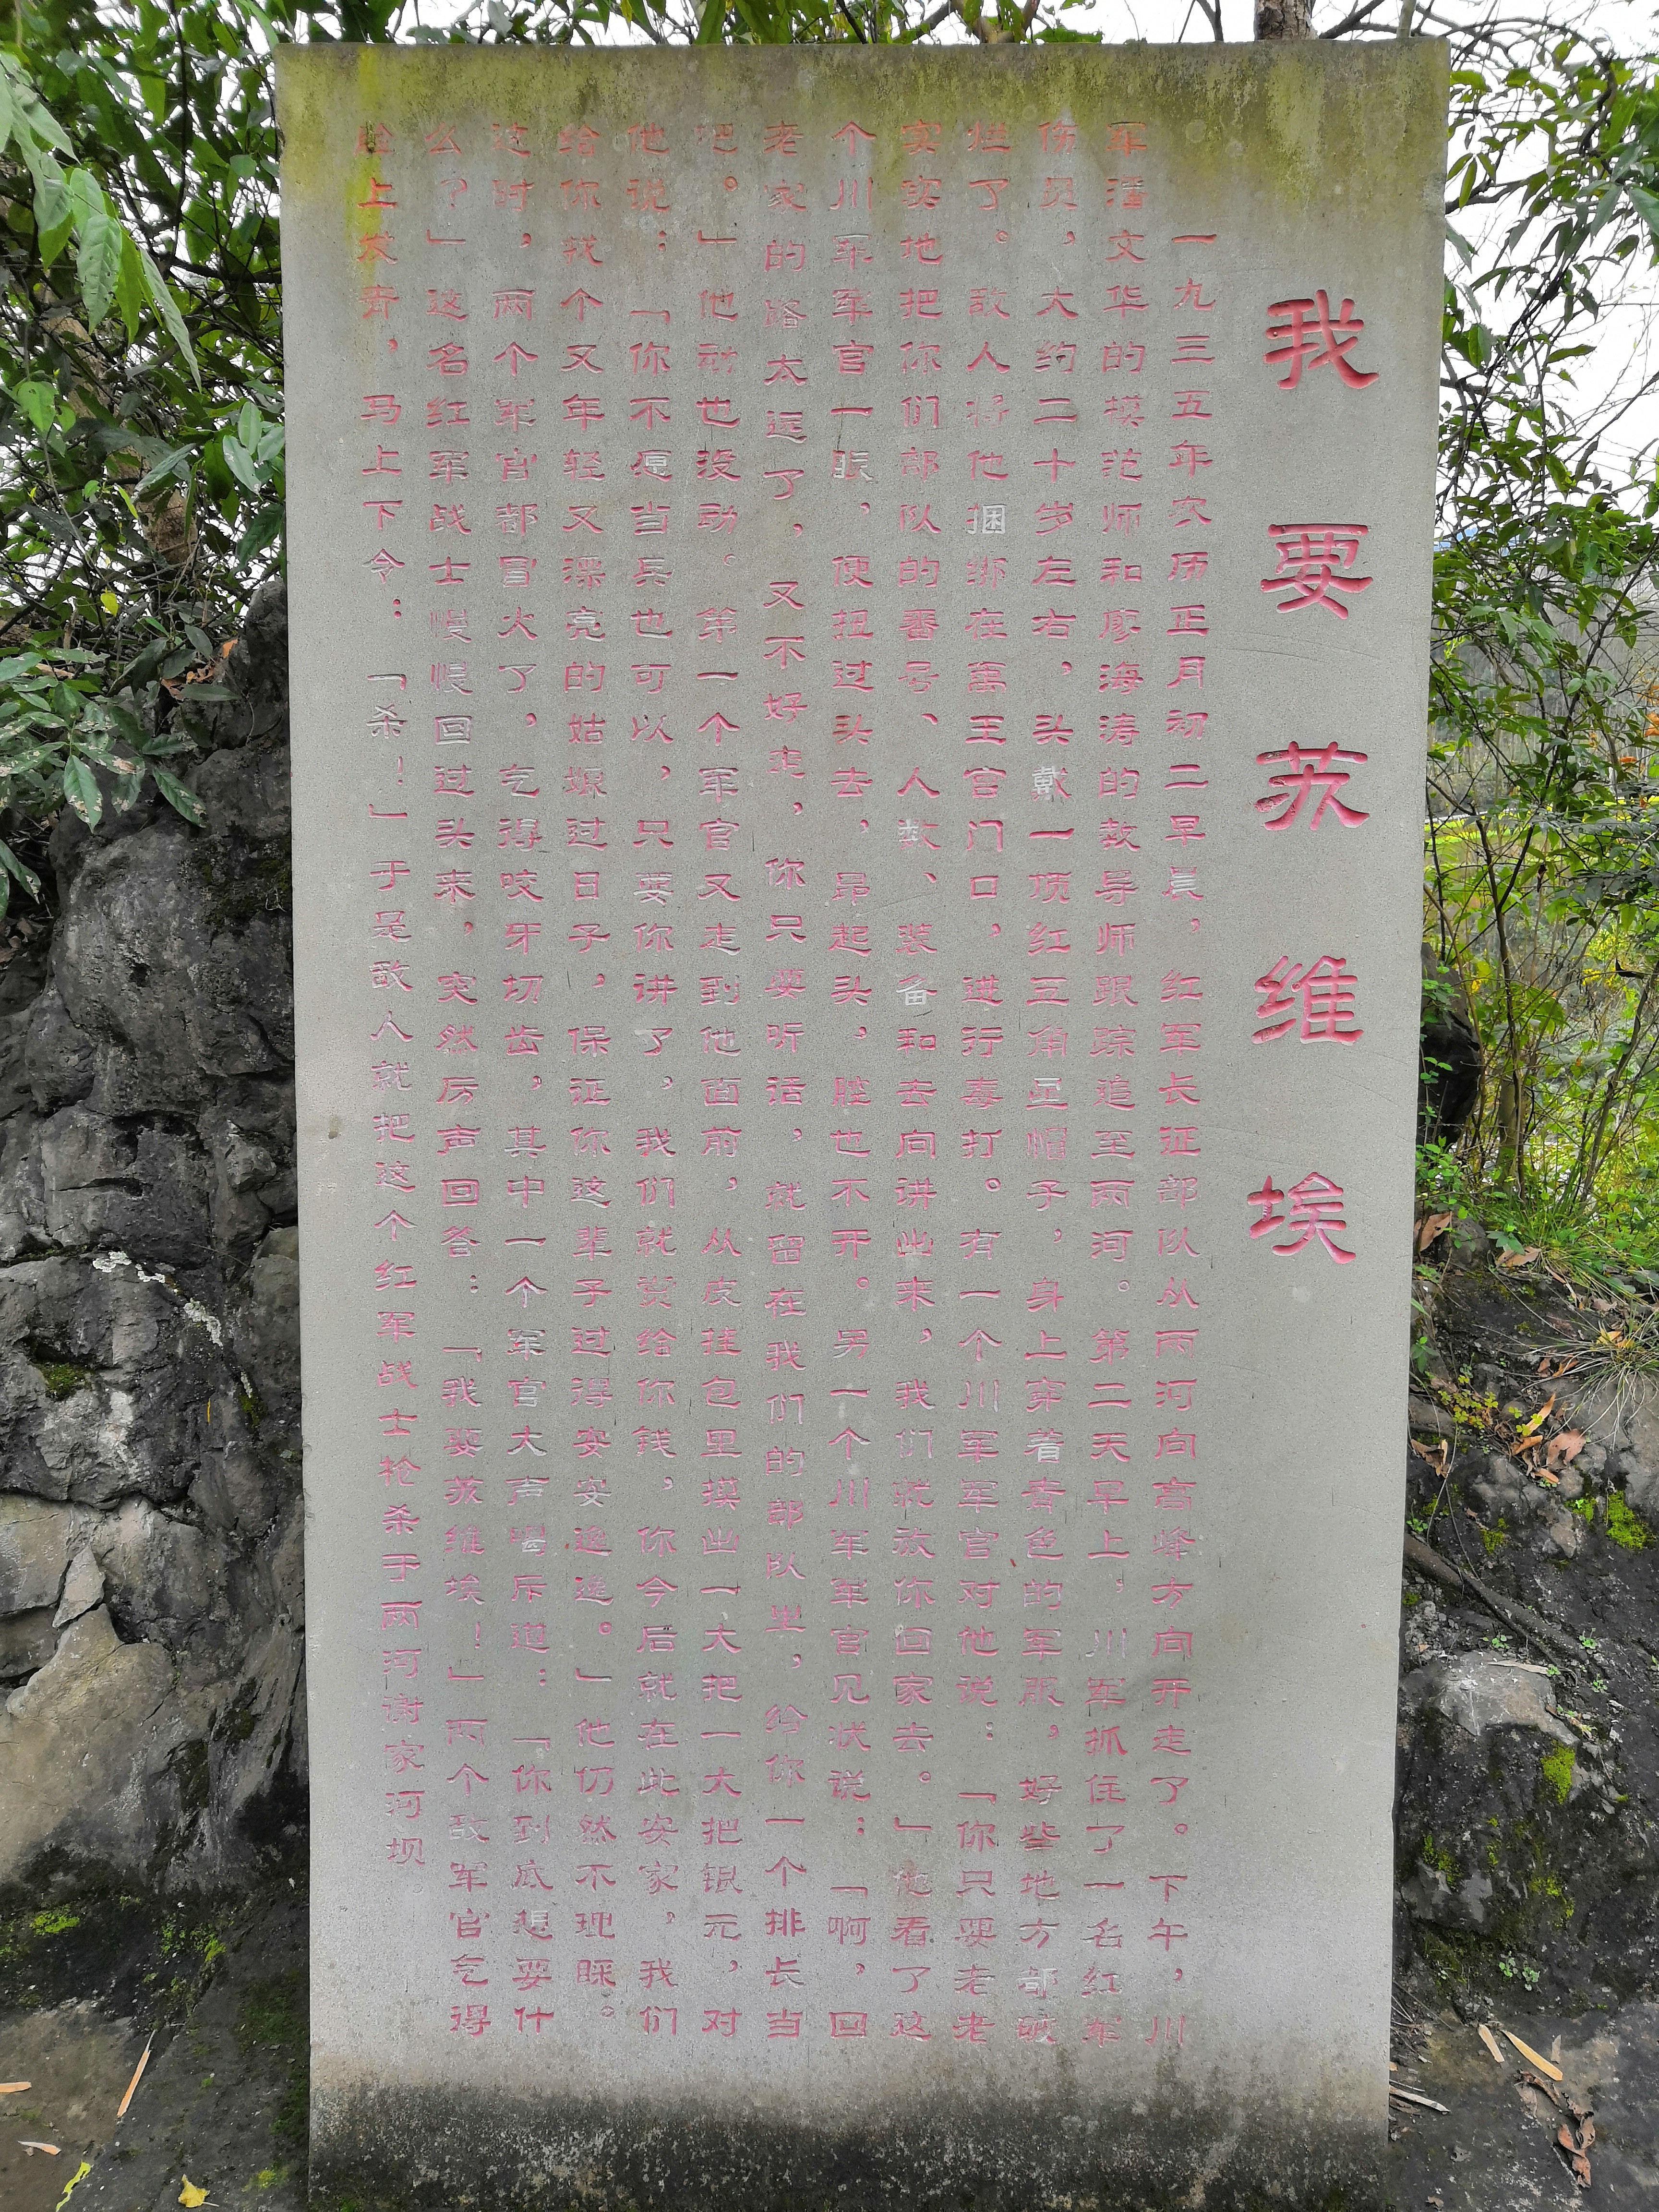 我要苏维埃
一九三五年农历正月初二早晨，红军长征部队从两河向高峰方向开走了。下午，川
军潘文华的模范师和廖海涛的教导师跟踪追至两河。第二天早上，川军抓住了一名红军
伤员，大约二十岁左右，头戴一顶红三角星帽子，身上穿着青色的军服，好些地方都破
烂了。敌人将他捆绑在万王宫门口，进行毒打。有一个川军军官对他说：「你只要老老
实实地把你们部队的番号、人数、装备和去向讲出来，我们就放你回家去。」他看了这
个川军军官一眼，便扭过头去，昂起头，脸也不开。另一个川军军官见状说：「啊，回
老家的路太远了，又不好走，你只要听话，就留在我们的部队里，给你一个排长当
吧。」他动也没动。第一个军官又走到他面前，从皮挂包里摸出一大把一大把银元，对
他说：「你不愿当兵也可以，只要你讲了，我们就赏给你钱，你今后就在此安家，我们
给你找个又年轻又漂亮的姑娘过日子，保证你这辈子过得安安逸逸。」他仍然不理睬。
这时，两个军官都冒火了，气得咬牙切齿，其中一个军官大声喝斥道：「你到底想要什
么？」这名红军战士慢慢回过头来，突然厉声回答：「我要苏维埃！」两个敌军官气得
脸上发青，马上下令：「杀！」于是敌人就把这个红军战士枪杀于两河谢家河坝。